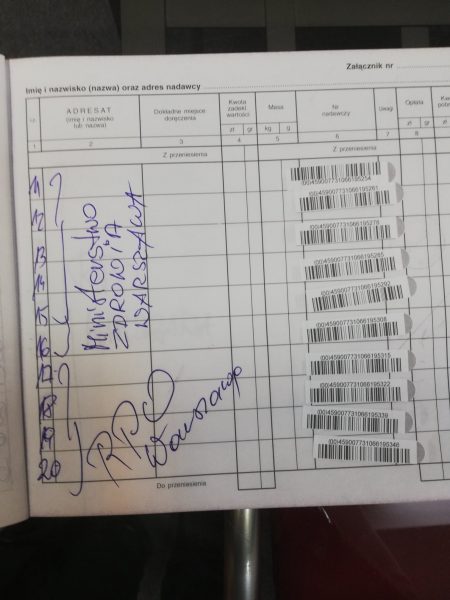 Załącznik nr
Imię i nazwisko (nazwa) oraz adres nadawcy
ADRESAT
(imię i nazwisko
lub nazwa)
Dokładne miejsce
doręczenia
Kwota
zadekl.
wartości
zł gr
Masa
kg g
Nr
nadawczy
Uwagi
Opłata
zł gr
1 2 3 4 5 6 7 8
Z przeniesienia
Z przeniesienia
11
12
13
14
15
16
17
18
19
20
Ministerstwo
ZDROWIA
WARSZAWA
RPO
Warszawa
(00)459007731066195254
(00)459007731066195261
(00)459007731066195278
(00)459007731066195285
(00)459007731066195292
(00)459007731066195308
(00)459007731066195315
(00)459007731066195322
(00)459007731066195339
(00)459007731066195346
Do przeniesienia